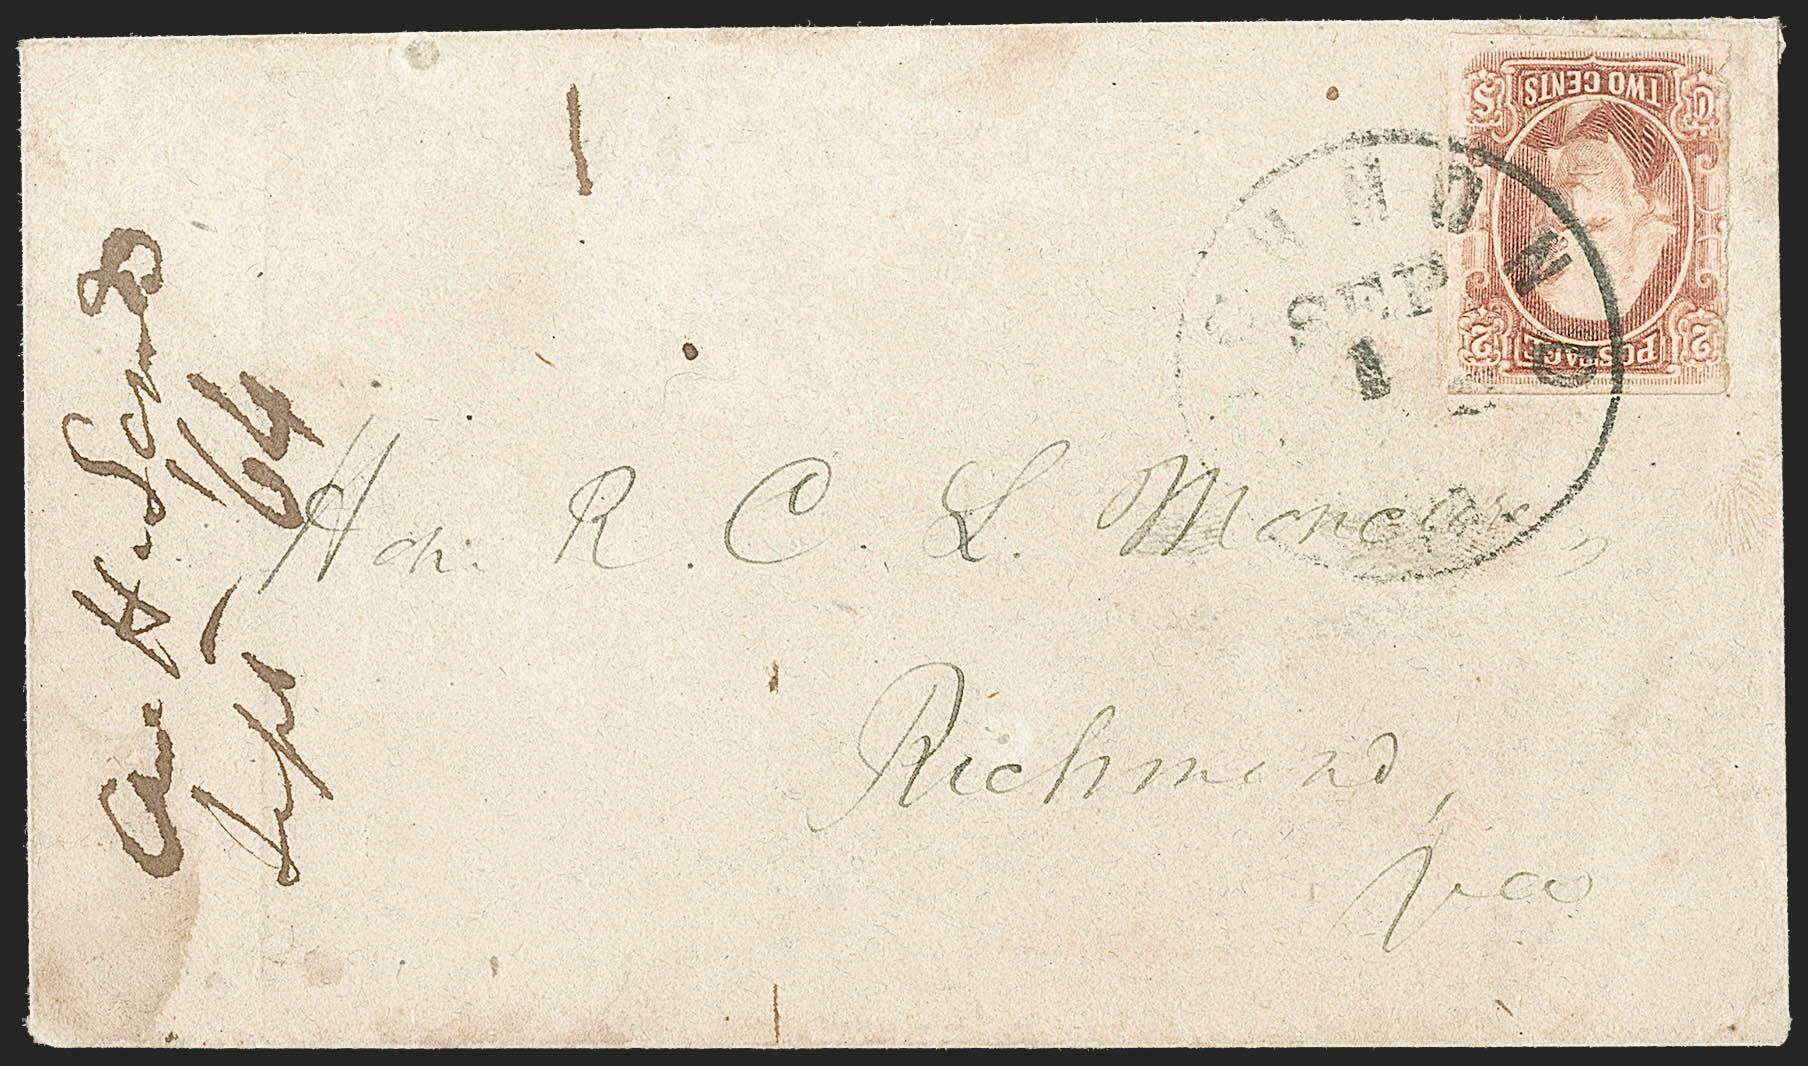 TWO CENTS
2 2
POSTAGE
RICHMOND
SEP
1
Hon. R. C. L. Moncure,
Richmond,
Va
Sept
/64